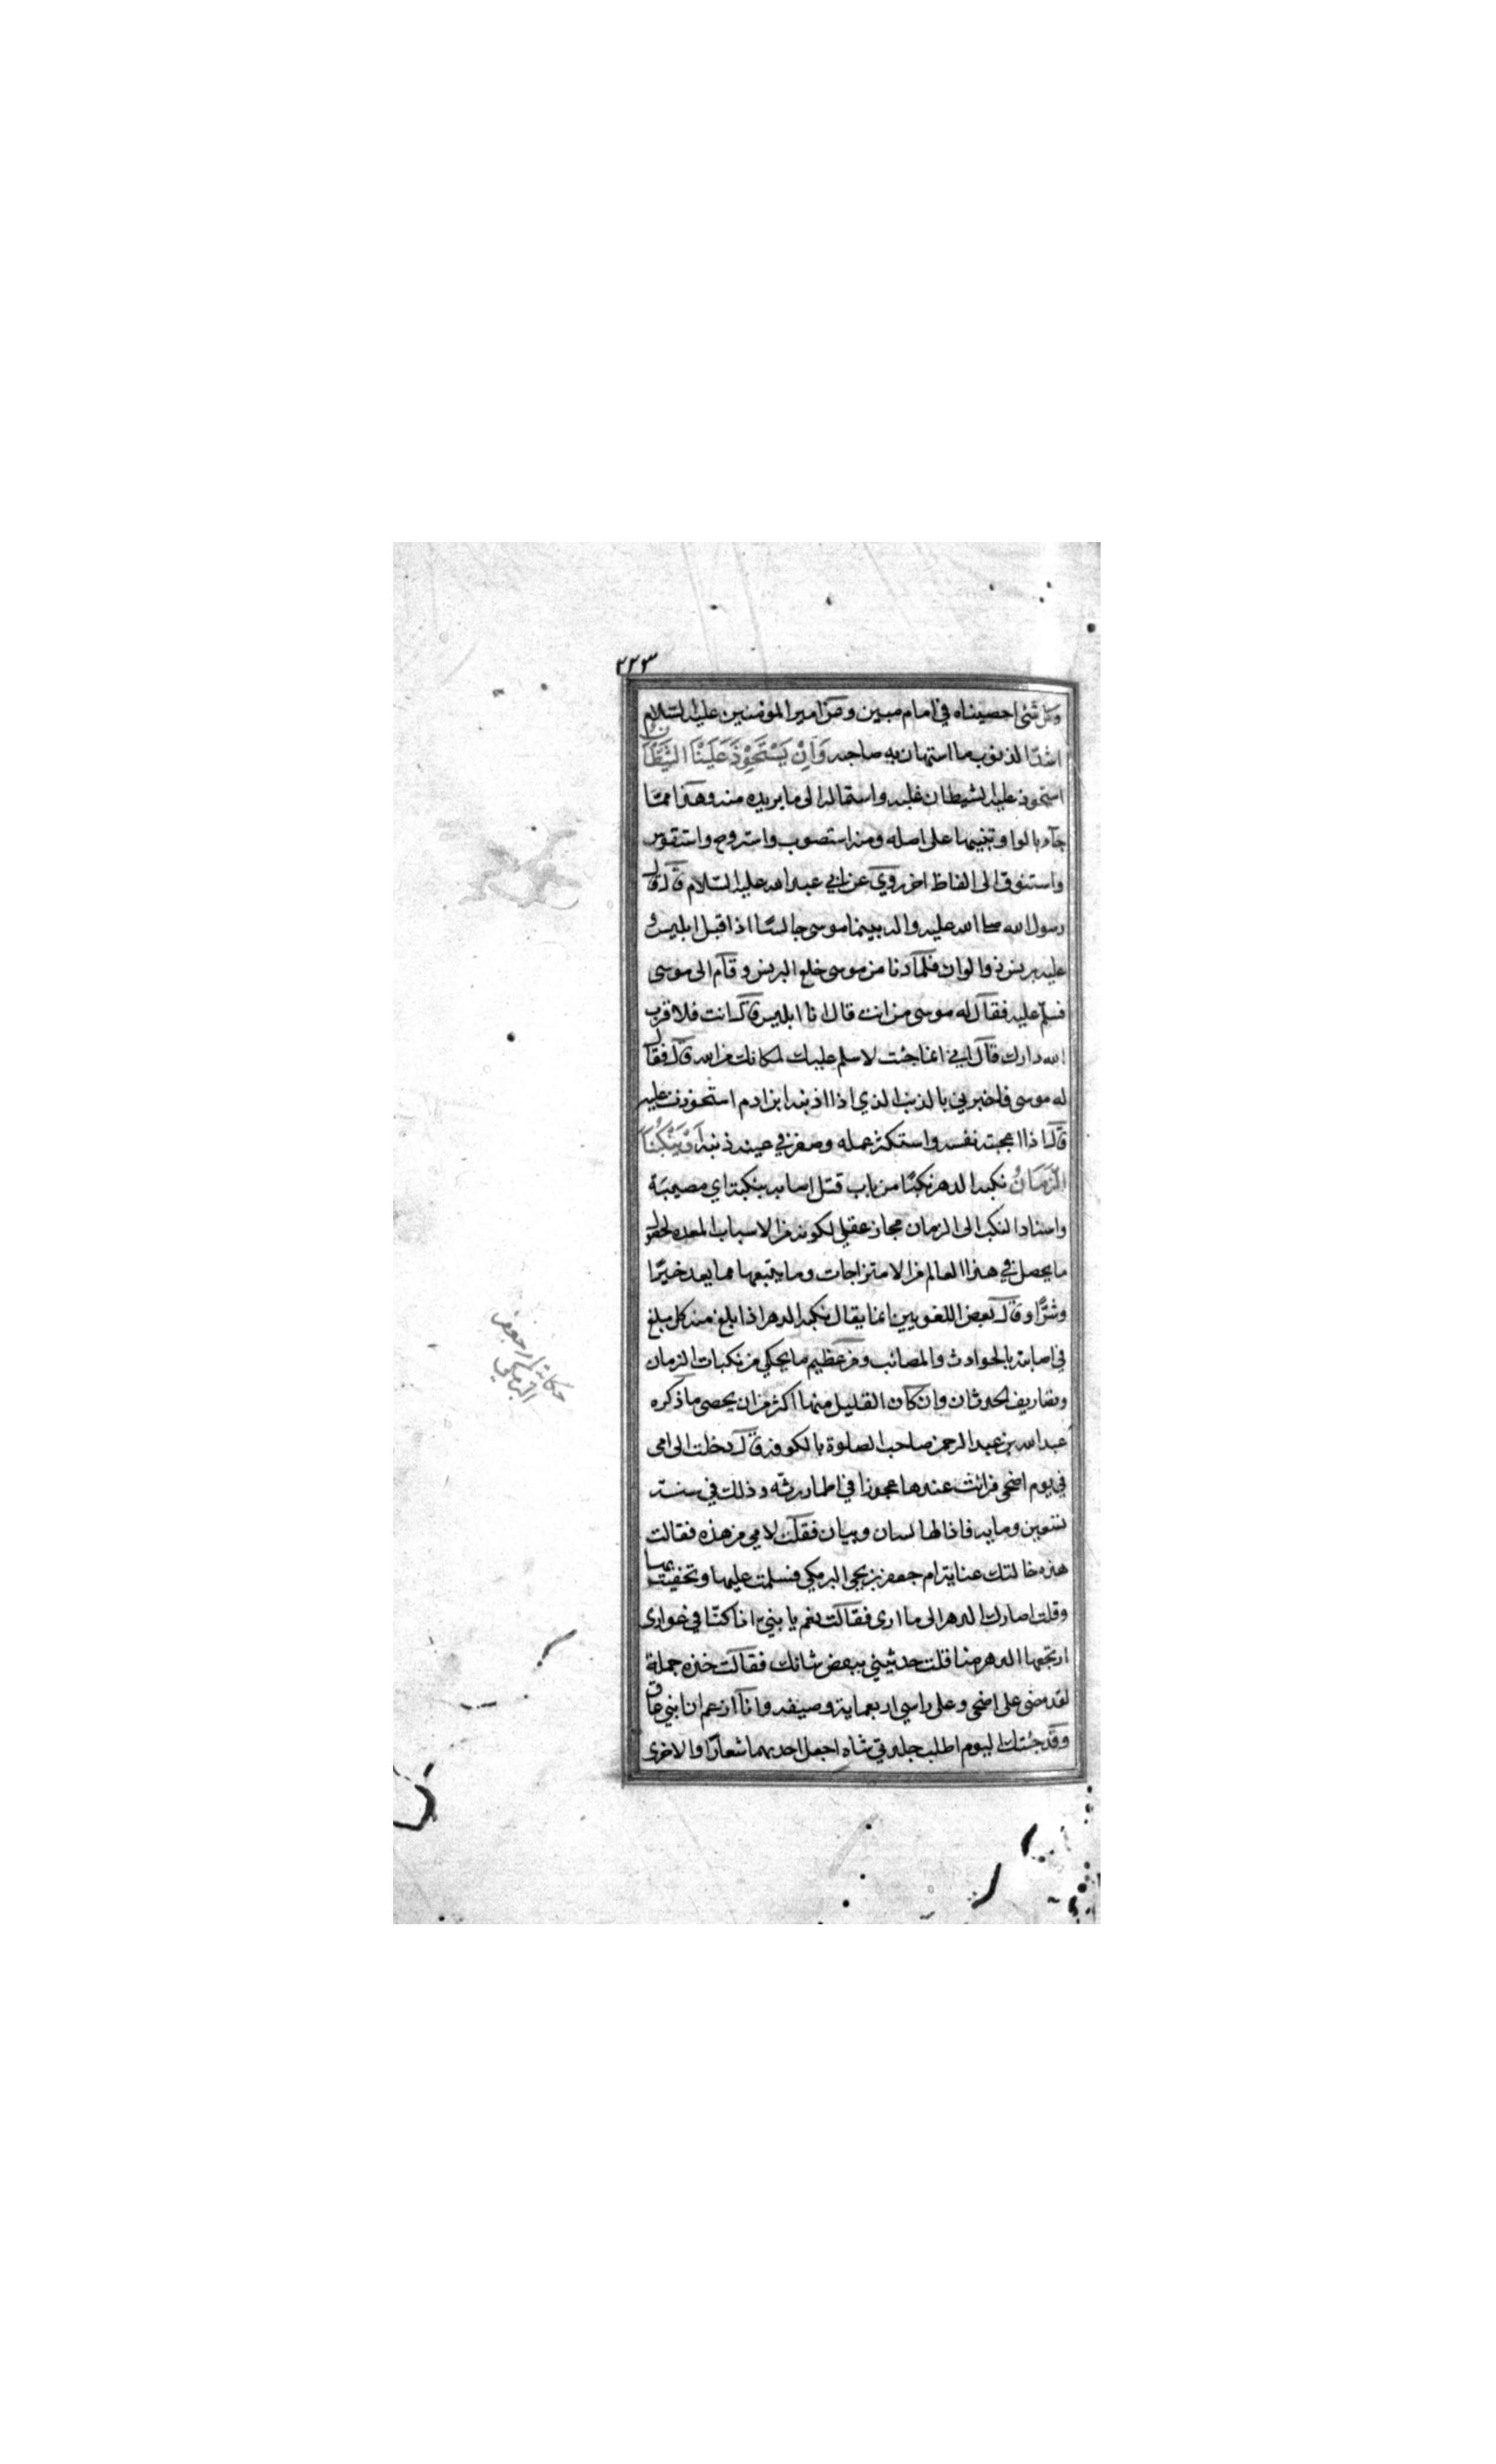 ٢٢٣
وكل شئ احصيناه في امام مبين وعن امير المؤمنين عليه السلام
اشد الذنوب ما استهان به صاحبه وَاَنْ يَسْتَحْوِذَ عَلَيْنَا الشَّيْطَانُ
استحوذ عليه الشيطان غلبه واستماله الى ما يريده منه وهذا مما
جاء بالواو تنبيها على اصله ومنه استصوب واستروح واستقوس
واستنوق الى الفاظ اخر روي عن ابي عبد الله عليه السلام قال قال
رسول الله صلى الله عليه واله بينما موسى جالسًا اذا اقبل ابليس و
عليه برنس ذو الوان فلما دنا من موسى خلع البرنس وقام الى موسى
فسلم عليه فقال له موسى من انت قال انا ابليس قال انت فلا قرب
الله دارك قال اني انما جئت لاسلم عليك لمكانك من الله قال فقال
له موسى فاخبرني بالذنب الذي اذا اذنبه ابن ادم استحوذت عليه
قال اذا اعجبته نفسه واستكثر عمله وصغر في عينه ذنبه اَوْ يَنْكُبَنَا
الزَّمَانُ نكبه الدهر نكبًا من باب قتل اصابه بنكبة اي مصيبة
واسناد النكب الى الزمان مجاز عقلي لكونه من الاسباب المعده لحصول
ما يحصل في هذا العالم من الامتزاجات وما يتبعها مما يعد خيرًا
وشرًّا وقال بعض اللغويين انما يقال نكبه الدهر اذا بلغ منه كل مبلغ
في اصابته بالحوادث والمصائب ومن عظيم ما يحكي من نكبات الزمان
وتصاريف الحدثان وان كان القليل منها اكثر من ان يحصى ما ذكره
عبد الله بن عبد الرحمن صاحب الصلوة بالكوفة قال دخلت الى امي
في يوم اضحى فرائت عندها عجوزا في اطمار رثه وذلك في سنة
تسعين وماية فاذا لها لسان وبيان فقلت لامي من هذه فقالت
هذه خالتك عناية ام جعفر بن يحيى البرمكي فسلمت عليها وتحفيت بها
وقلت اصارك الدهر الى ما ارى فقالت نعم يا بني انا كنا في عواري
ارتجعها الدهر منا قلت حدثيني ببعض شانك فقالت خذه جملة
لقد مضى على اضحى وعلى راسي اربعماية وصيفه وانا ازعم ان ابني عاق
وقد جئتك اليوم اطلب جلدتي شاه اجعل احديهما شعارًا والاخرى
حكاية ام جعفر
البرمكي